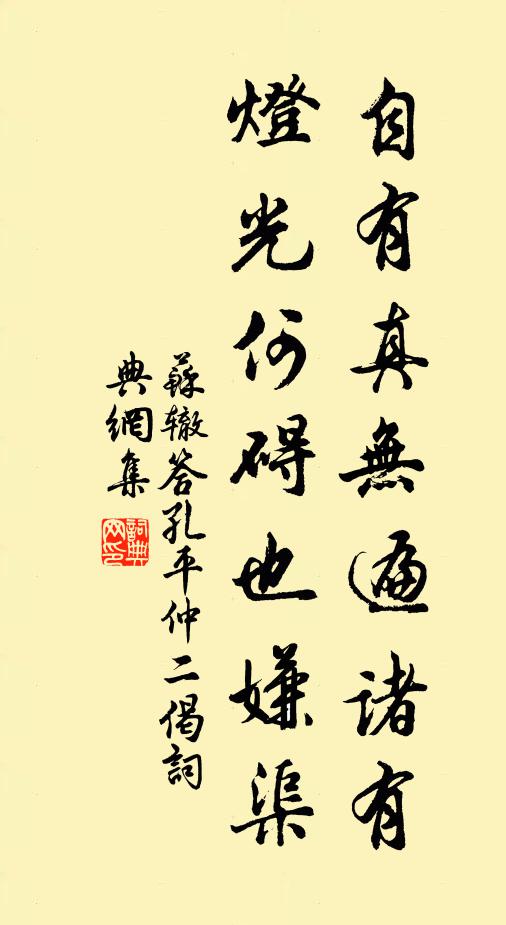 自有真無遍諸有
燈光何碍也嫌渠
蘇辙答孔平仲二偈詞
典網集
詞典網印